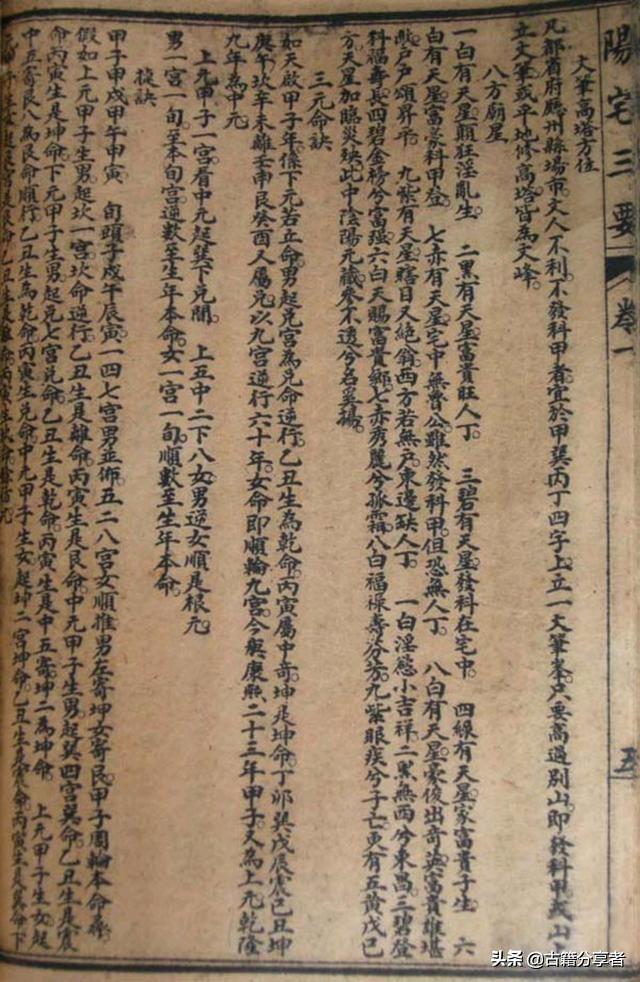 陽宅三要 卷一 五
文筆高塔方位
凡都省府廳州縣場市文人不利不發科甲者宜於甲巽丙丁四字上立一文筆峯只要高過別山即發科甲或山上
立文筆或平地修高塔皆為文峰
八方廟星
一白有天星顛狂淫亂生 二黑有天星富貴旺人丁 三碧有天星發科在宅中 四綠有天星家富貴子生 六
白有天星富豪科甲登 七赤有天星宅中無貴公雖然發科甲但恐無人丁 八白有天星豪俊出奇英富貴雄堪
戶戶頌昇平 九紫有天星瞎目又絕翁西方若無戶東邊缺人丁 一白淫慾小吉祥二黑無西兮東昌三碧登
科福壽長四碧金榜兮富强六白天賜富貴鄉七赤秀麗兮孤霜八白福祿壽芬芳九紫眼疾兮子亡更有五黄戊己
方天星加臨災殃此中陰陽元藏參不透兮名莫揚
三元命訣
如天啟甲子年係下元若立命男起兌宮為兌命逆行乙丑生為乾命丙寅屬中寄坤是坤命丁卯巽戊辰震己巳坤
庚午坎辛未離壬申艮癸酉又屬兌以九宮逆行六十年女命即順輪九宮今與康熙二十三年甲子又為上元乾隆
九年為中元
上元甲子一宮看中元起巽下兌間 上五中二下八女男逆女順是根元
男一宮一旬至本旬宮逆數至生年本命女一宮一旬順數至生年本命
捷訣
甲子甲戌甲午甲寅 旬頭子戌午辰寅一四七宮男並佈五二八宮女順推男左寄坤女寄艮甲子周輪本命尋
假如上元甲子生男起坎一宮坎命逆行乙丑生是離命丙寅生是艮命中元甲子生男起巽四宮巽命乙丑生是震
命丙寅生是坤命下元甲子生男起兌七宮兌命乙丑生是乾命丙寅生是中五寄坤二為坤命 上元甲子生女起
中五寄艮八為艮命順行乙丑生為乾命丙寅生兌命中元甲子生女起坤二宮坤命乙丑生是震命丙寅生是巽命下
頭条 @古籍分享者